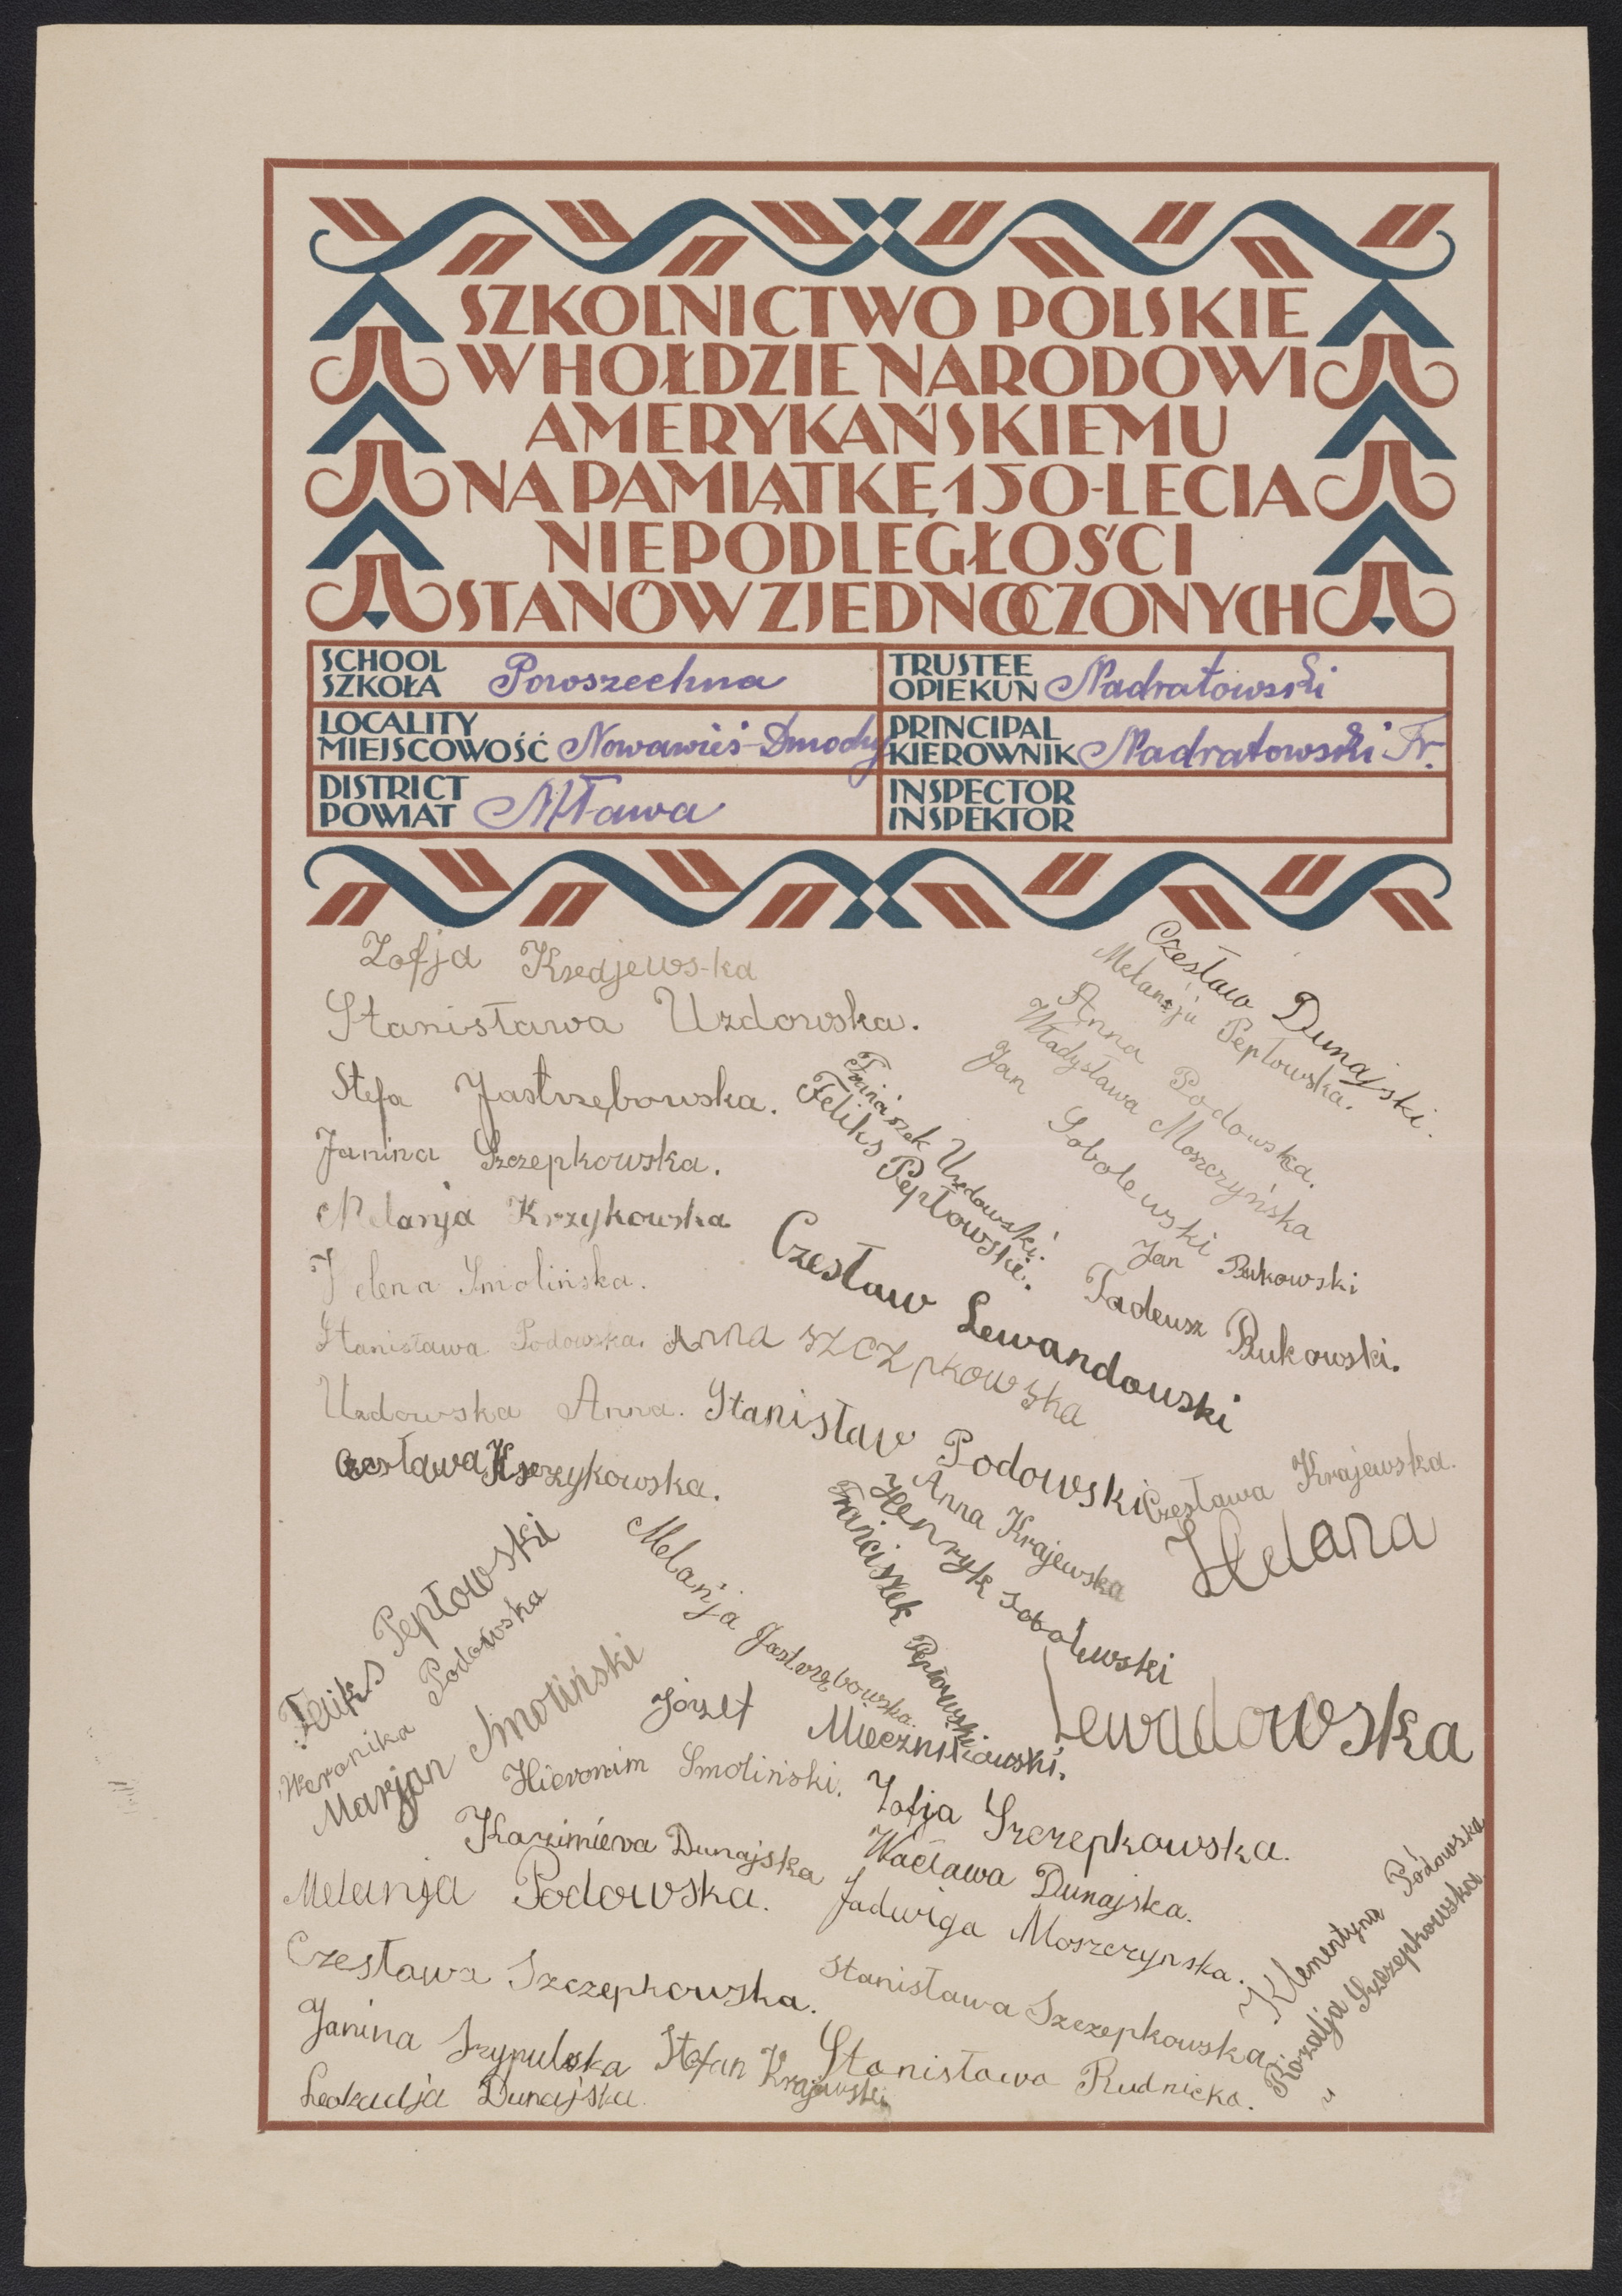 SZKOLNICTWO POLSKIE
W HOŁDZIE NARODOWI
AMERYKAŃSKIEMU
NA PAMIĄTKĘ 150-LECIA
NIEPODLEGŁOŚCI
STANÓW ZJEDNOCZONYCH
SCHOOL
SZKOŁA Powszechna
TRUSTEE
OPIEKUN Nadratowski
LOCALITY
MIEJSCOWOŚĆ Nowawieś-Dmochy
PRINCIPAL
KIEROWNIK Nadratowski Fr.
DISTRICT
POWIAT Mława
INSPECTOR
INSPEKTOR
Zofja Krajewska
Stanisława Uzdowska.
Stefa Jastrzębowska.
Janina Szczepkowska.
Melanja Krzykowska
Helena Smolińska.
Stanisława Podowska.
Uzdowska Anna.
Czesława Krzykowska.
Czesław Dunajski.
Melanja Pepłowska.
Anna Podowska.
Władysława Moszczyńska
Jan Sobolewski
Franciszek Uzdowski.
Feliks Pepłowski.
Jan Bukowski
Tadeusz Bukowski.
Czesław Lewandowski
Anna Szczpkowska
Stanisław Podowski
Czesława Krajewska.
Anna Krajewska
Henryk Sobolewski
Franciszek Pepłowski
Helana
Lewadowska
Feliks Pepłowski
Weronika Podowska
Marjan Smoliński
Melanja Jastrzębowska.
Józef Miecznikowski.
Hieronim Smoliński.
Zofja Szczepkowska.
Kazimiera Dunajska
Wacława Dunajska.
Melanja Podowska.
Jadwiga Moszczynska.
Czesława Szczepkowska.
Stanisława Szczepkowska
Klementyna Podowska
Rozalja Szczepkowska
Janina Szypulska
Stefan Krajewski
Stanisława Rudnicka.
Leokadja Dunajska.